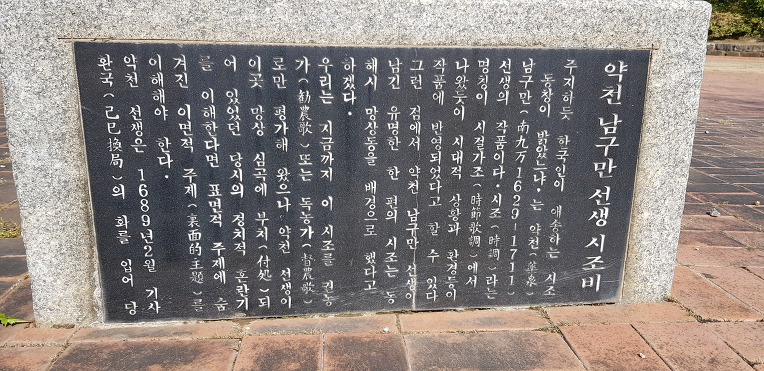 약천 남구만 선생 시조비
주지하듯 한국인이 애송하는 시조
동창이 밝았느냐·는 약천(藥泉)
남구만(南九万1629-1711)
선생의 작품이다·시조(時調)라는
명칭이 시절가조(時節歌調)에서
나왔듯이 시대적 상황과 환경등이
작품에 반영되었다고 할 수 있다
그런 점에서 약천 남구만 선생이
남긴 유명한 한 편의 시조는 동
해시 망상동을 배경으로 했다고
하겠다.
우리는 지금까지 이 시조를 권농
가(勸農歌) 또는 독농가(督農歌)
로만 평가해 왔으나 약천 선생이
이곳 망상 심곡에 부처(付処)되
어 있었던 당시의 정치적 혼란기
를 이해한다면 표면적 주제에 숨
겨진 이면적 주제(裏面的主題)를
이해해야 한다.
약천 선생은 1689년2월 기사
환국(己巳換局)의 화를 입어 당